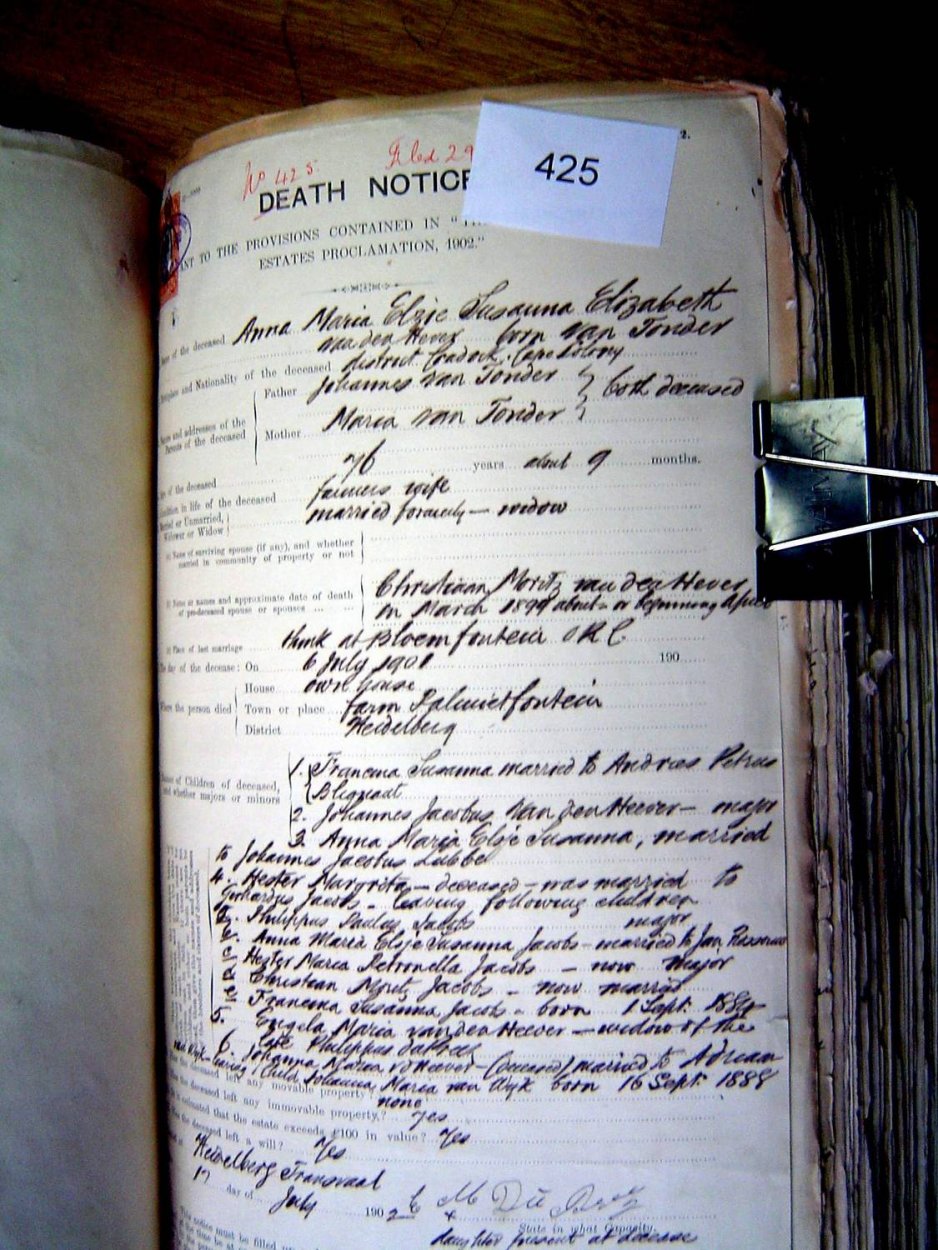 No 425 Filed 29
425
2.
DEATH NOTICE
TO THE PROVISIONS CONTAINED IN "
ESTATES PROCLAMATION, 1902."
of the deceased Anna Maria Elsie Susanna Elizabeth
van den Hever born van Tonder
and Nationality of the deceased district Cradock, Cape Colony
Names and addresses of the Parents of the deceased
Father Johannes van Tonder } both deceased
Mother Maria van Tonder
of the deceased 76 years about 9 months.
Condition in life of the deceased farmers wife
Married or Unmarried, Widower or Widow married formerly — widow
Name of surviving spouse (if any), and whether
married in community of property or not
Name or names and approximate date of death
of predeceased spouse or spouses
Christiaan Moritz van den Hever
in March 1899 about - or beginning April
Place of last marriage think at Bloemfontein ORC
The day of the decease: On 6 July 1901 190
House own house
Where the person died Town or place farm Palmietfontein
District Heidelberg
Names of Children of deceased,
and whether majors or minors
1. Francina Susanna married to Andries Petrus
Blignaut
2. Johannes Jacobus van den Heever — major
3. Anna Maria Elsje Susanna, married
to Johannes Jacobus Lubbe
4. Hester Margrita — deceased — was married to
Gerhardus Jacobs - leaving following children
a. Philippus Paulus Jacobs major
b. Anna Maria Elsje Susanna Jacobs - married to Jan
c. Hester Maria Petronella Jacobs — now major
d. Christian Moritz Jacobs - now married
e. Francina Susanna Jacobs - born 1 Sept. 1884
5. Engela Maria van den Heever — widow of the
late Philippus du Preez
6. Johanna Maria vd Heever - (deceased) married to Adrian
van Wyk - leaving 1 child Johanna Maria van Wyk born 16 Sept. 1888
the deceased left any movable property? none
the deceased left any immovable property? yes
is estimated that the estate exceeds £100 in value? Yes
Has the deceased left a will? Yes
Heidelberg Transvaal
17 day of July 1902 E M Du Preez
State in what Capacity.
daughter present at decease
This notice must be filled